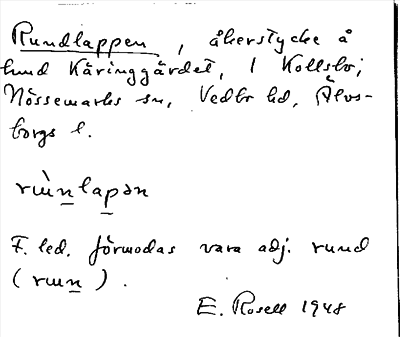 Rundlappen, åkerstycke å
lund Käringgärdet, 1 Kollsbo;
Nössemarks sn, Vedbo hd, Älvs-
borgs l.
rɯ̀nlapən
F. led. förmodas vara adj. rund
(rɯn).
E. Rosell 1948